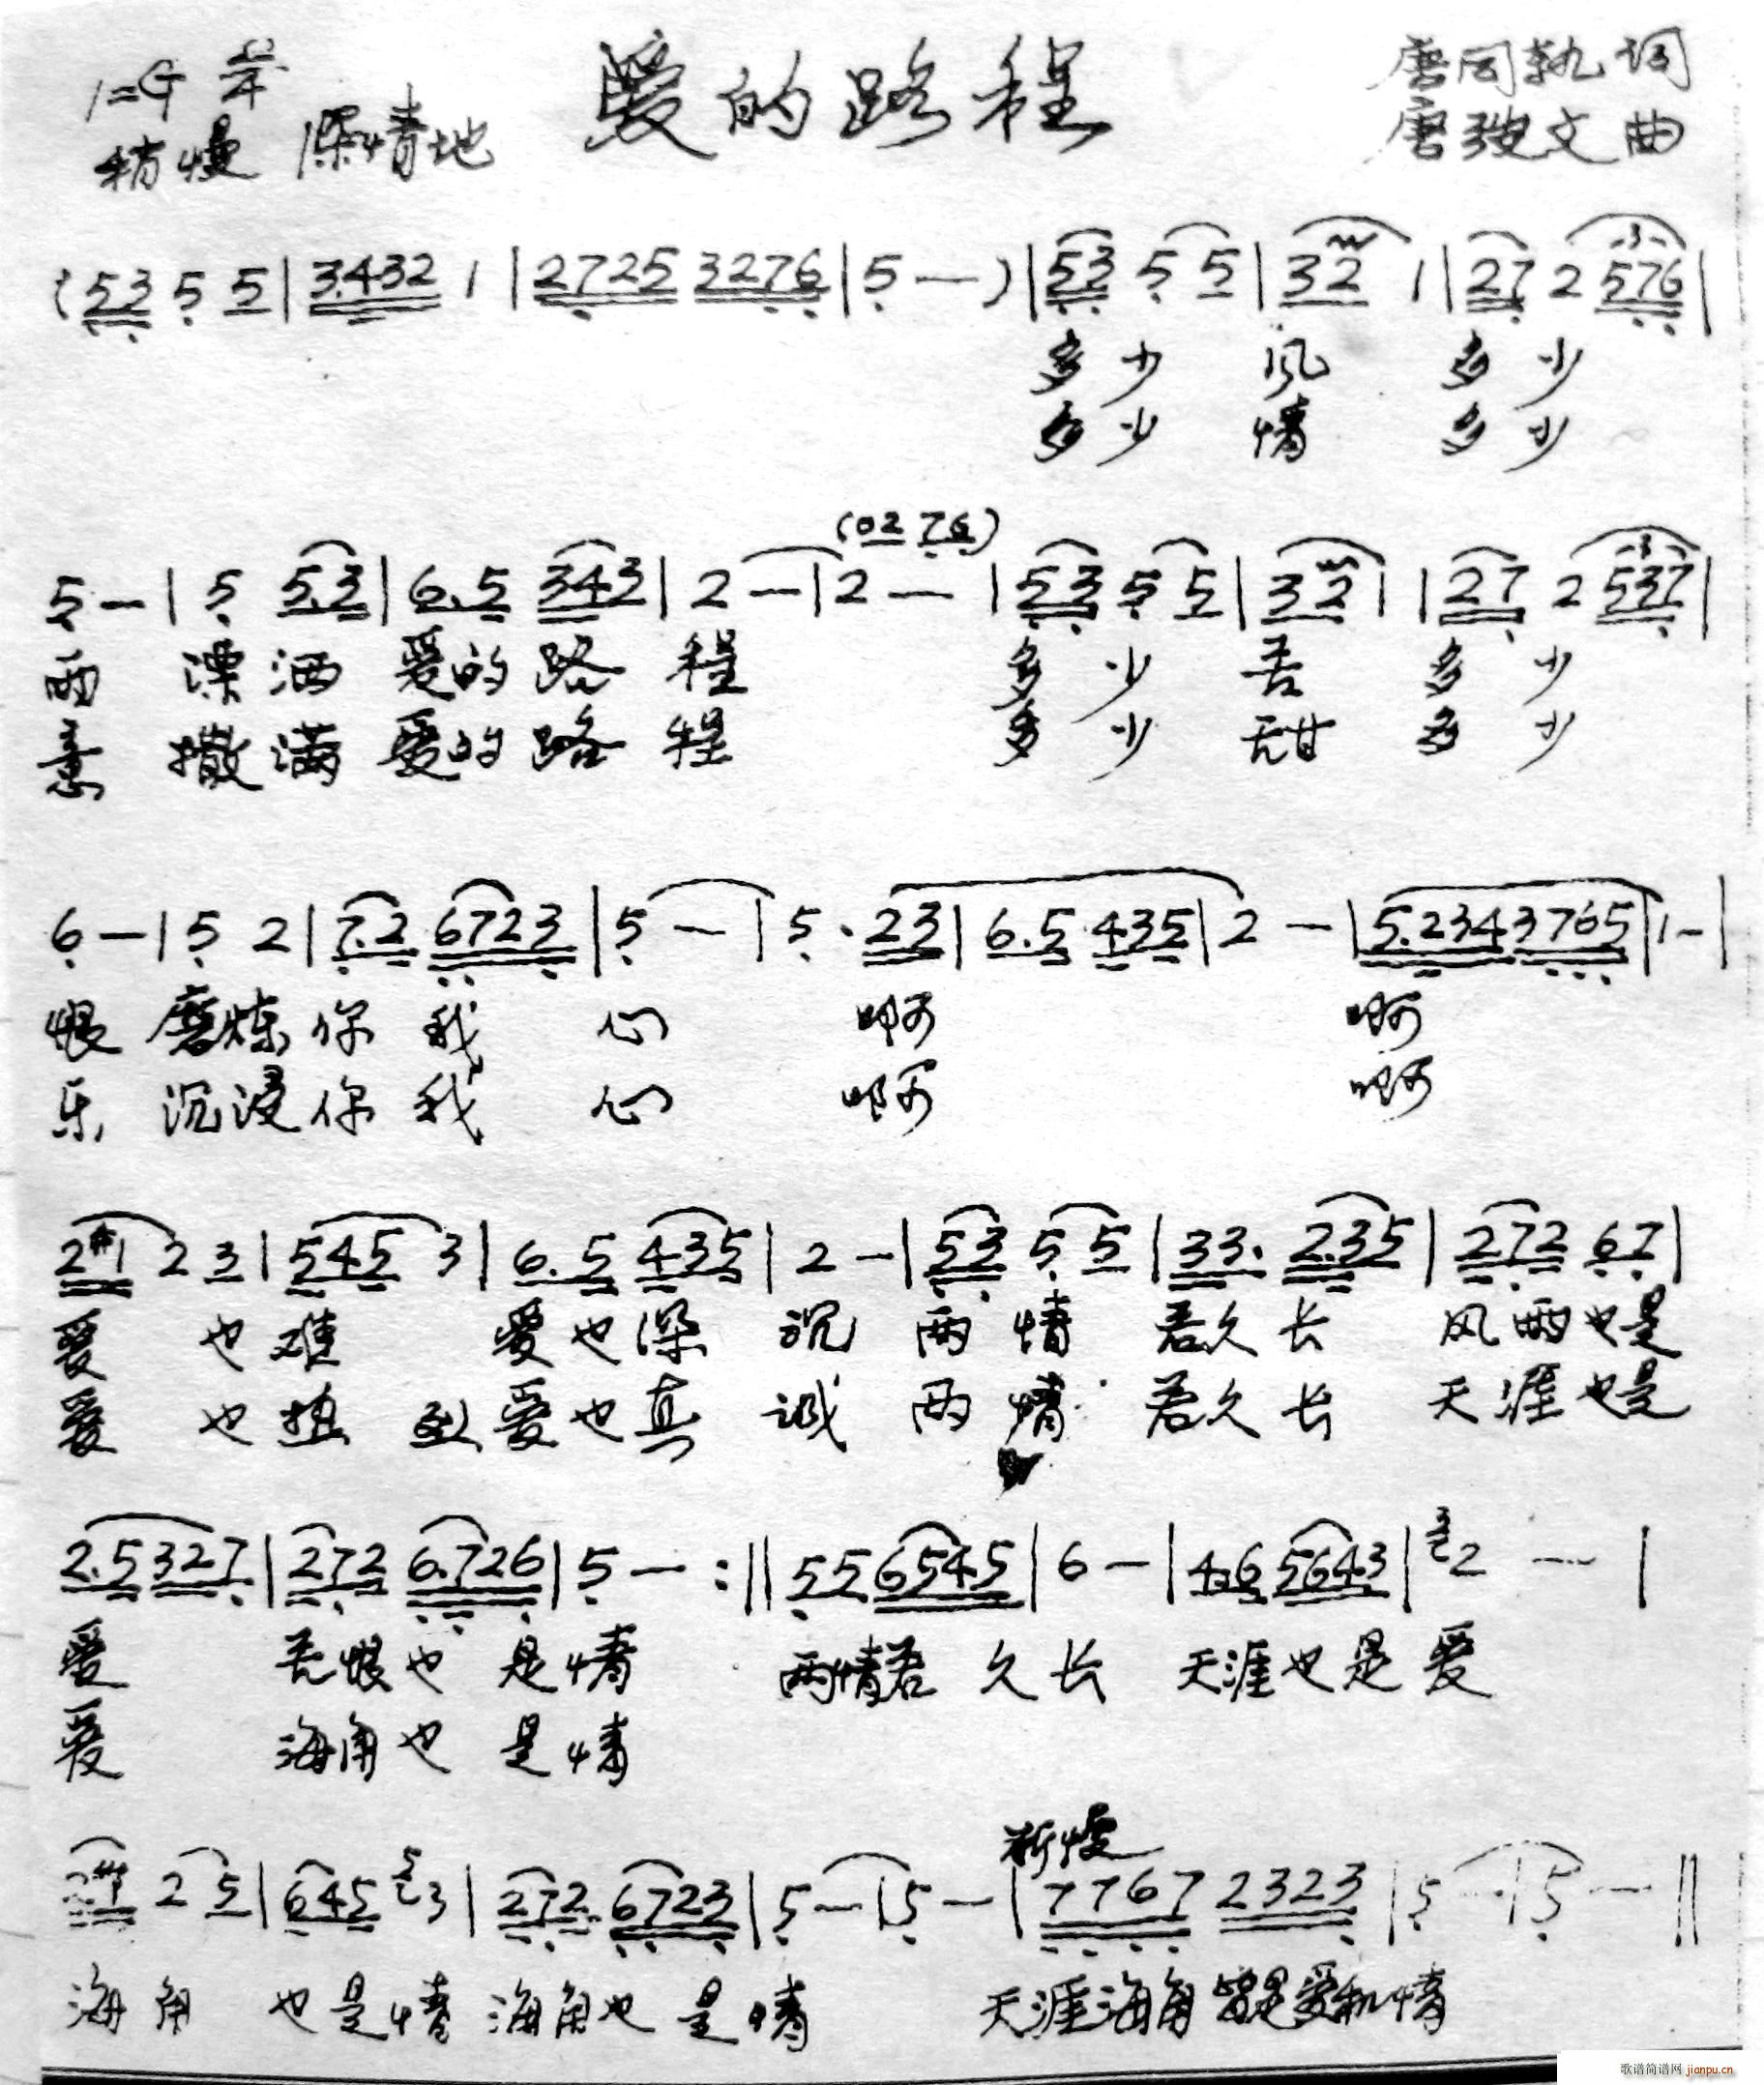 1=G 2/4 爱的路程 唐同轨词
稍慢 深情地 唐 文曲
(53 5 5|3.432 1|2725 3276|5 —)|53 5 5|32 1|27 2 576|
多少 风 多少
多少 情 多少
(02 76)
5 —|5 5.3|6.5 343|2 —|2 —|53 5 5|32 1|27 2 537|
雨 漂洒 爱的路 程 多少 苦 多少
意 撒满 爱的路 程 多少 甜 多少
6 —|5 2|7.2 6723|5 —|5. 23|6.5 435|2 —|5.234 3765|1 —|
恨 磨炼你 我 心 啊 啊
乐 沉浸你 我 心 啊 啊
2#1 2 3|545 3|6.5 435|2 —|53 5 5|33. 2.35|272 67|
爱 也难 爱也深 沉 两情 若久长 风雨也是
爱 也 爱也真 诚 两情 若久长 天涯也是
2.5 327|272 6.726|5 — :‖ 55 6545|6 —|4.6 5643|3 2 —|
爱 苦恨也 是情 两情若 久长 天涯也是爱
爱 海角也 是情
渐慢
2#1 2 5|645 5 3|272 6723|5 —|5 —|7767 2323|5 —|5 —‖
海角 也是情 海角也 是情 天涯海角皆是爱和情
歌谱简谱网 jianpu.cn